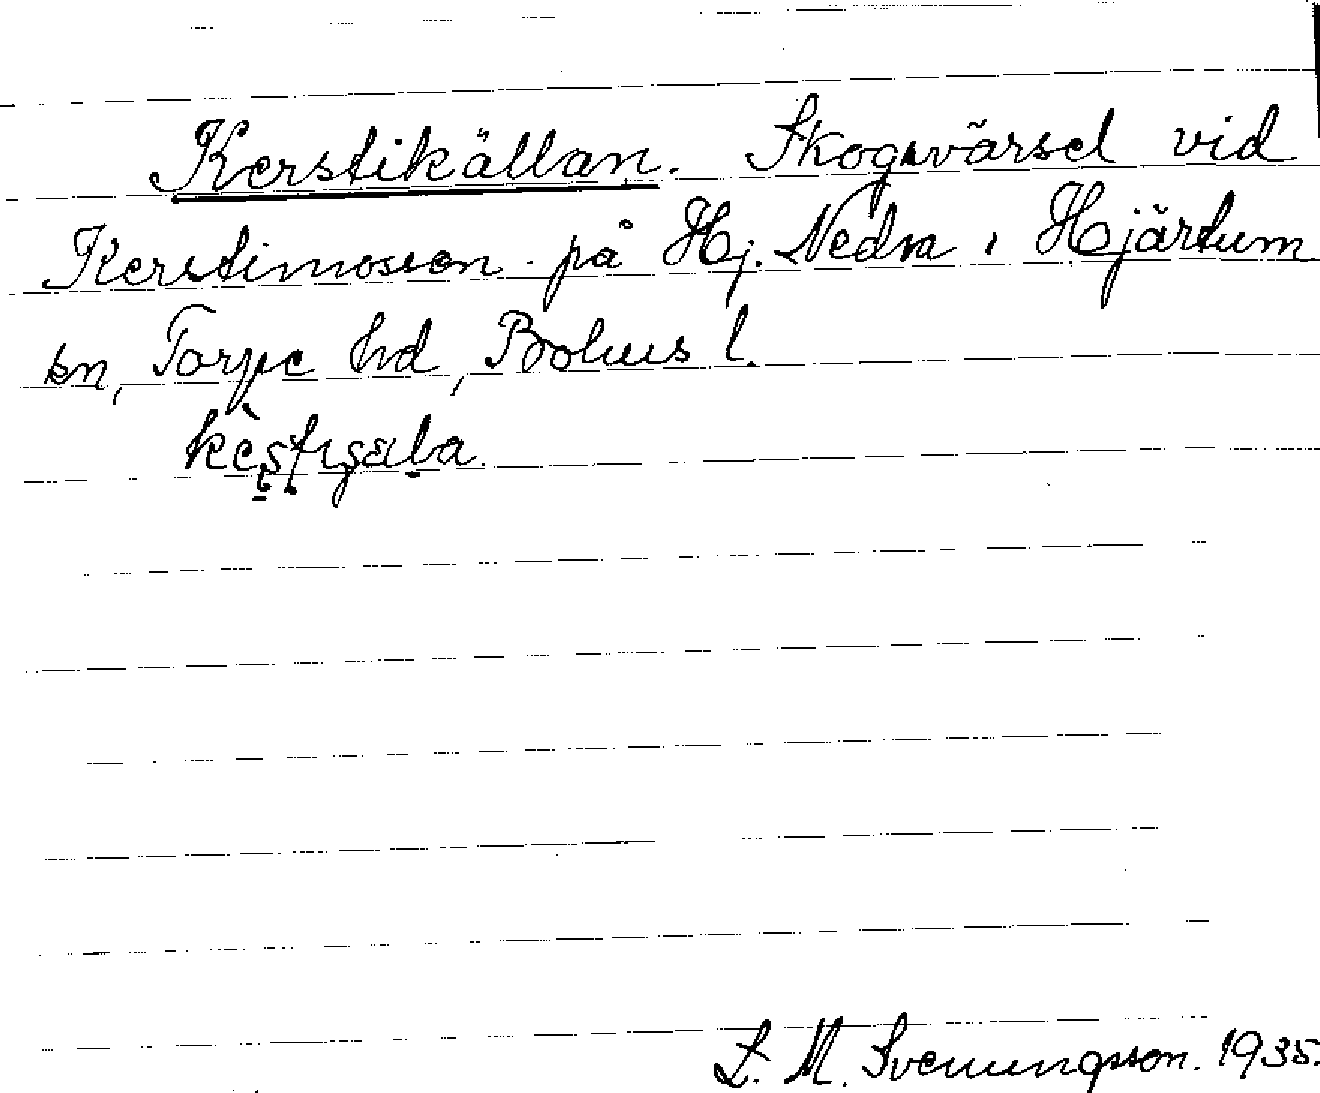 Kerstikällan. Skogsvärsel vid
Kerstimossen på Hj. Nedra i Hjärtum
sn, Torpe hd, Bohus l.
L. M. Svenungsson. 1935.